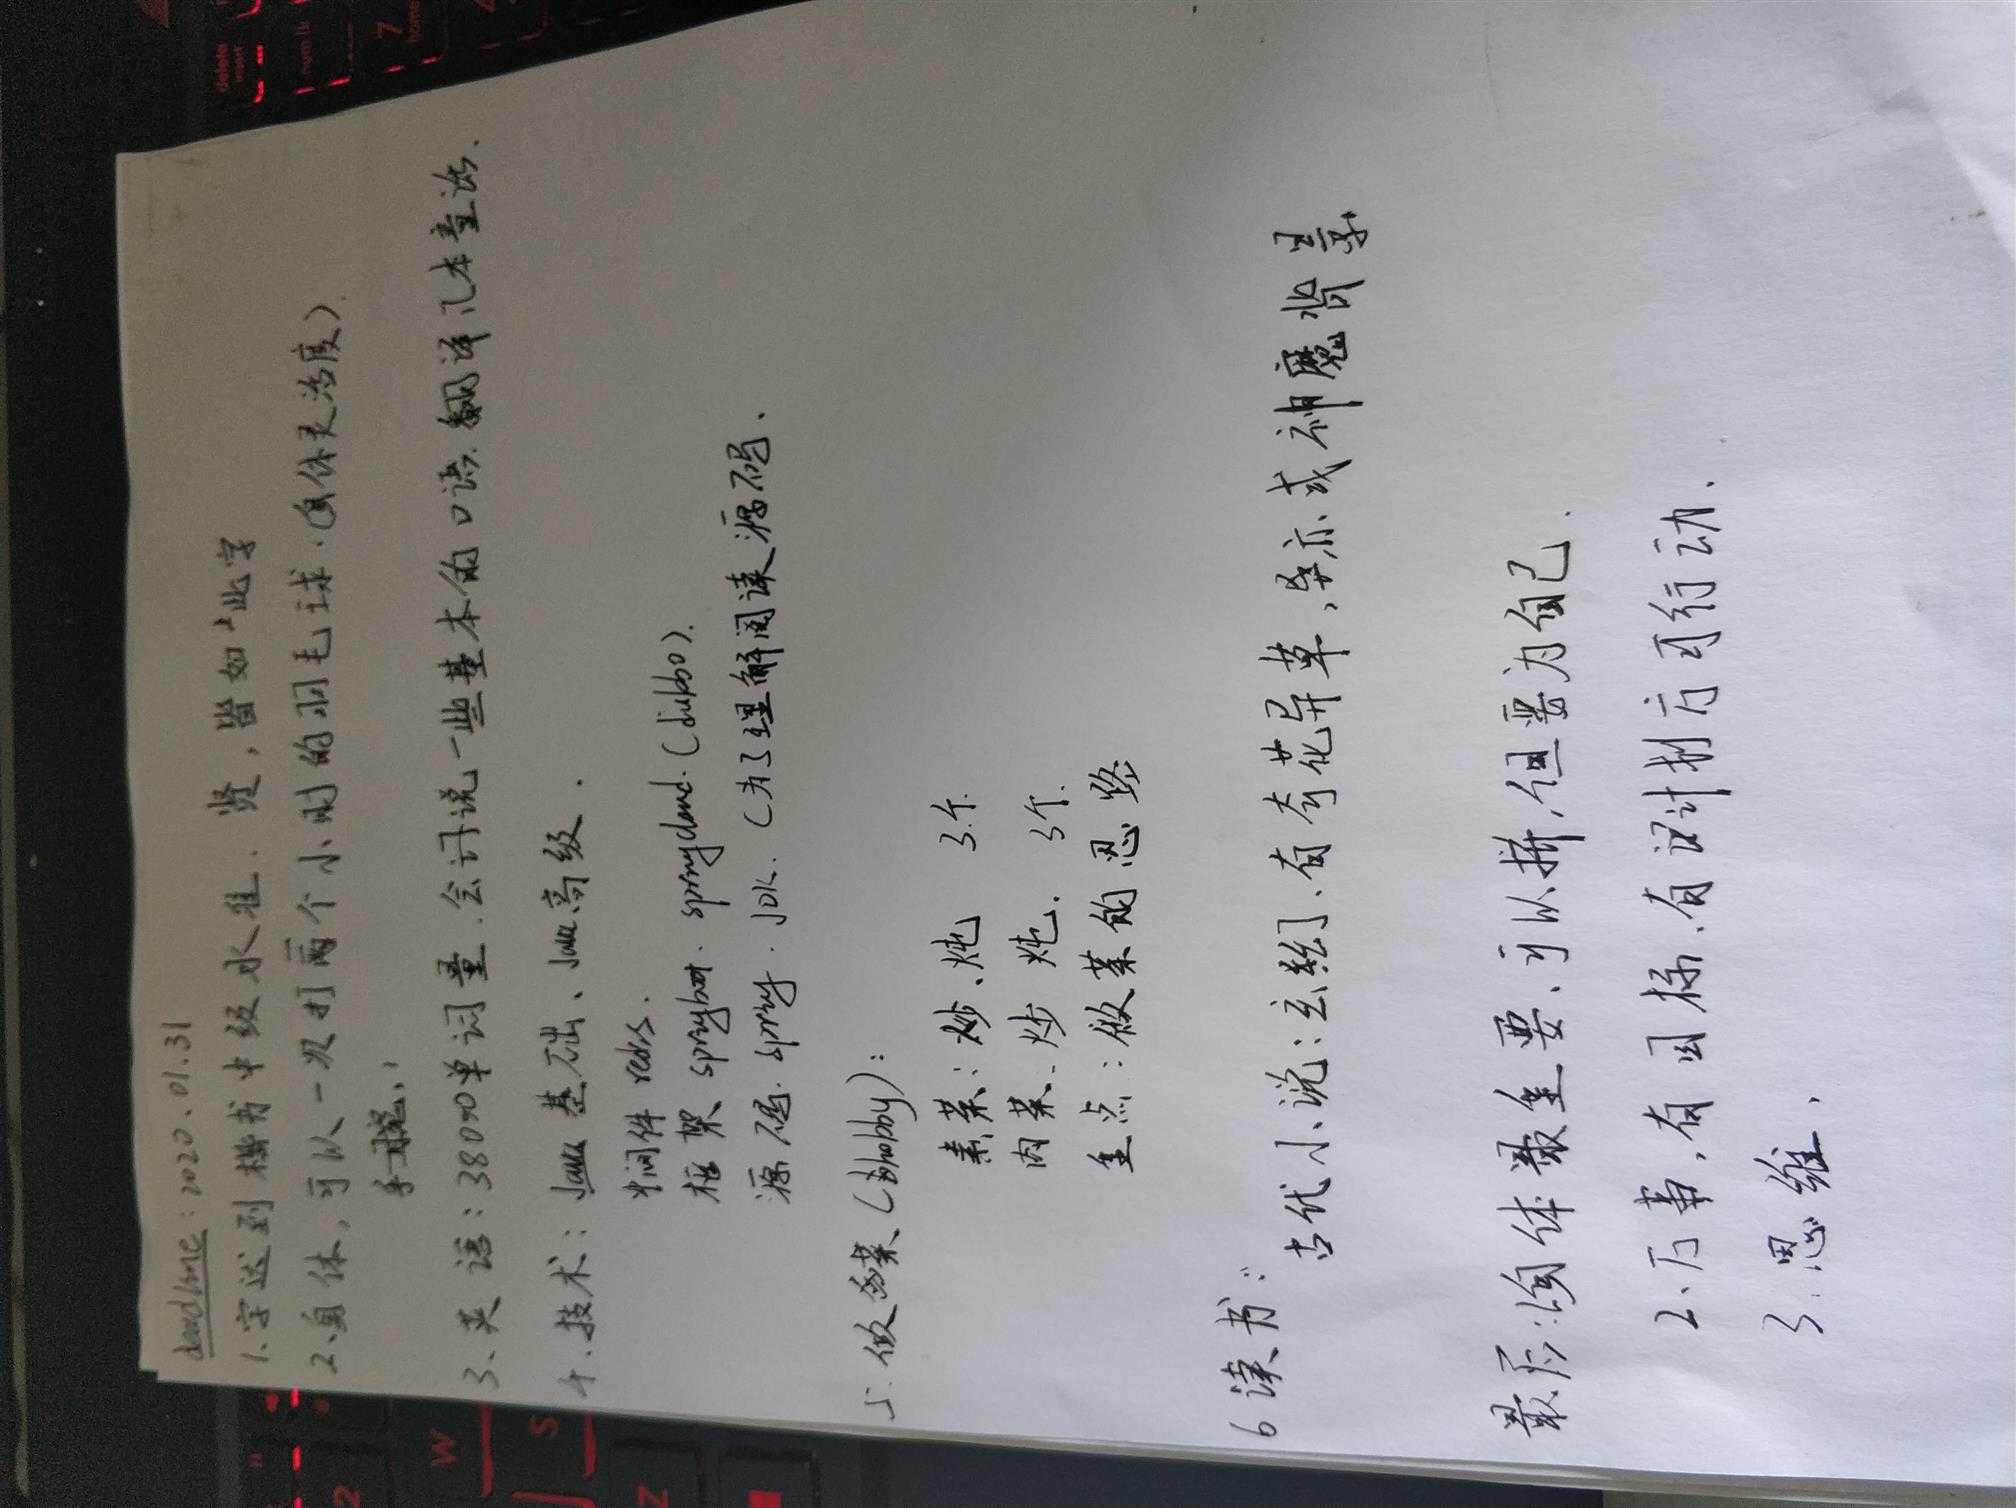 deadline：2020.01.31
1.字达到楷书中级水准. 贤，皆如此字
2.身体，可以一次打两个小时的羽毛球.(身体灵活度).
手腕、
3、英语：3800单词量.会说一些基本的口语.翻译几本童话.
4.技术：Java 基础、Java高级.
中间件 redis.
框架 springboot. springcloud.(dubbo).
源码. spring. JDK. (为了理解阅读源码.
5.做菜(hobby)：
素菜：炒、炖 3个.
肉菜、炒 炖. 5个.
重点：做菜的思路
6读书：
古代小说：玄幻、有奇花异草，亦或神魔背景
最后：身体最重要、可以拼，但要为自己.
2.万事，有目标、有计划方可行动.
3.思维.
delete
insert
num lk
7
home
W
S
Z
2